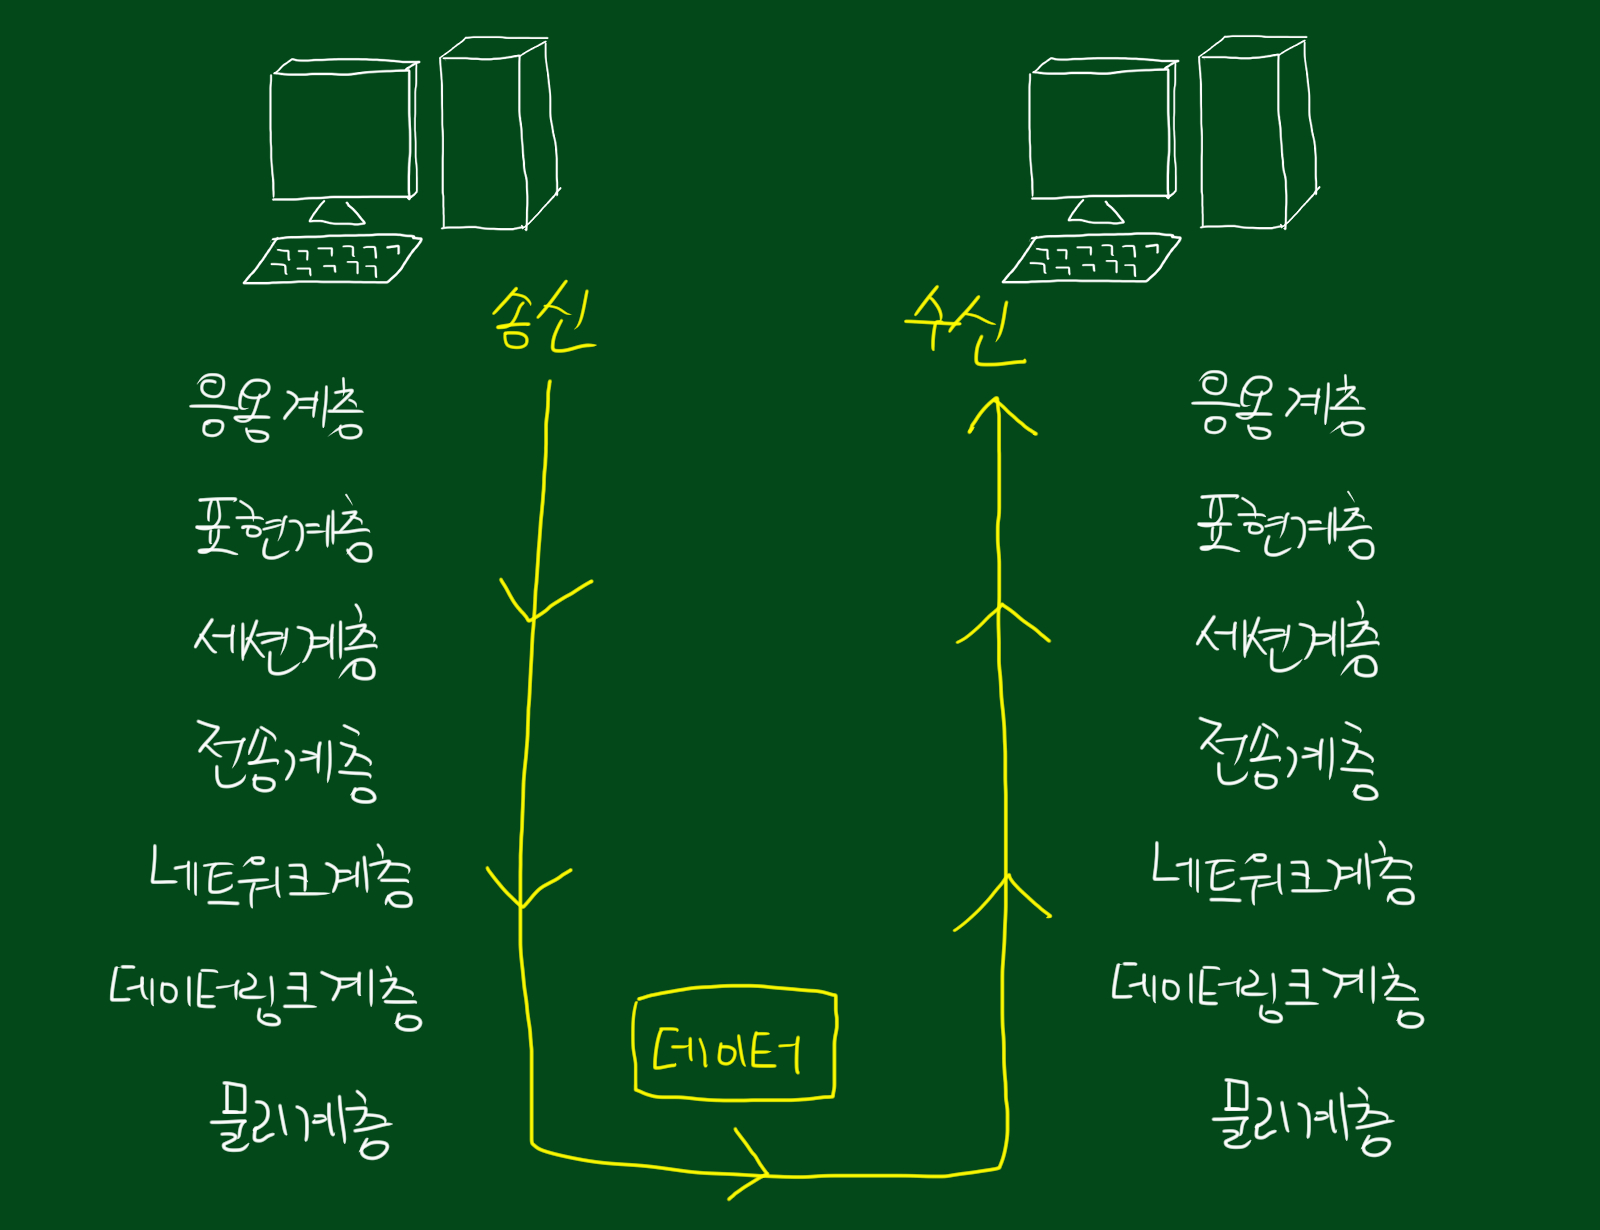 송신
수신
응용계층
표현계층
세션계층
전송계층
네트워크계층
데이터링크계층
물리계층
데이터
응용계층
표현계층
세션계층
전송계층
네트워크계층
데이터링크계층
물리계층